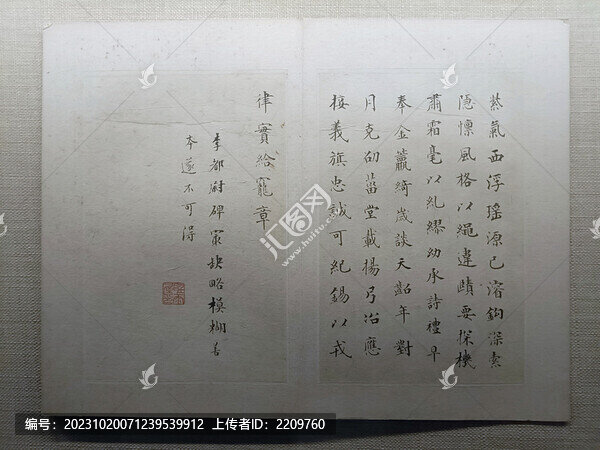 紫氣西浮瑤源已濬鈎深索
隱懍風格以繩違賾要探機
肅霜毫以糺繆幼承詩禮早
奉金籯綺歲談天齠年對
月克劭菑堂載揚弓冶應
接義旗忠誠可紀錫以戎
律實給寵章
李都尉碑缺略模糊善
本遂不可得
汇图网
www.huitu.com
编号：20231020071239539912 上传者ID：2209760